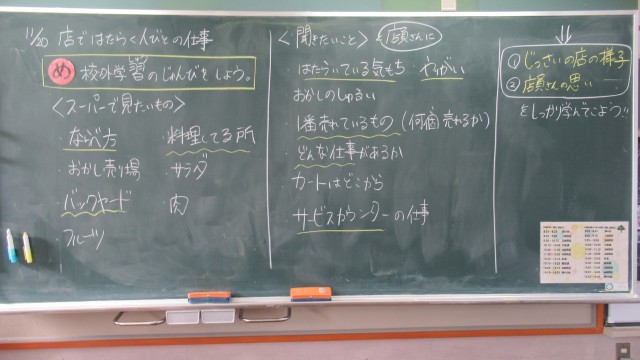 11/20 店ではたらく人びとの仕事
め 校外学習のじゅんびをしよう。
しゅう
<スーパーで見たいもの>
・ならべ方
・料理してる所
・おかし売り場
・サラダ
・バックヤード
・肉
・フルーツ
<聞きたいこと>を店員さんに
・はたらいている気もち・やりがい
・おかしのしゅるい
・1番売れているもの(何個売れるか)
・どんな仕事があるか
・カートはどこから
・サービスカウンターの仕事
①じっさいの店の様子
②店員さんの思い
をしっかり学んでこよう!!